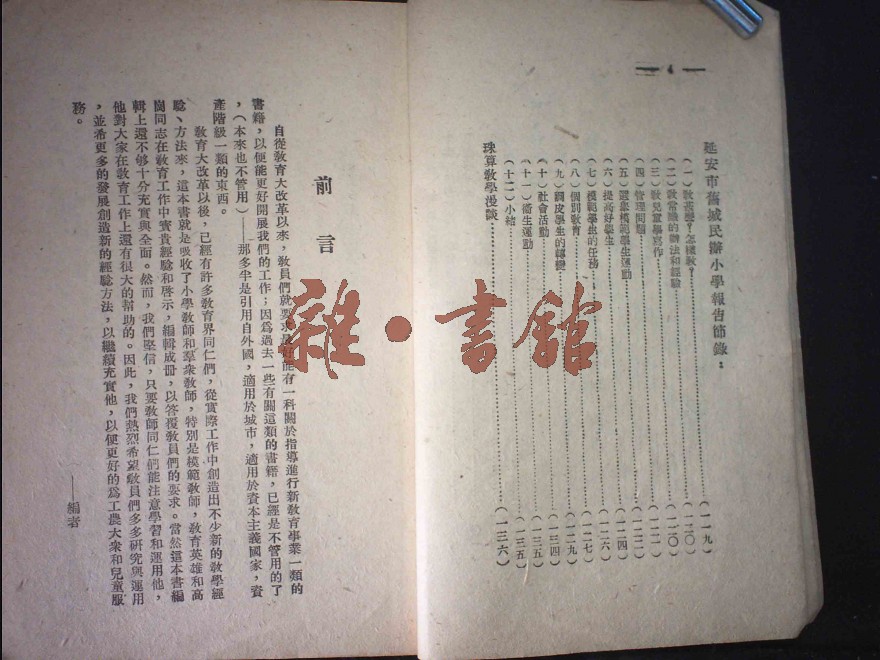 — 4 —
延安市舊城民辦小學報告節錄：
（一）教甚麼？怎樣教？……（一一九）
（二）教常識的辦法和經驗……（一二〇）
（三）教兒童學寫作……（一二〇）
（四）管理問題……（一二二）
（五）選舉模範學生運動……（一二二）
（六）提高好學生……（一二四）
（七）模範學生的任務……（一二六）
（八）個別教育……（一二七）
（九）調皮學生的轉變……（一二九）
（十）社會活動……（一三四）
（十一）衛生運動……（一三五）
（十二）小結……（一三五）
珠算教學漫談……（一三六）
前言
自從教育大改革以來，教員們就要求最好能有一科關於指導進行新教育事業一類的
書籍，以便能更好開展我們的工作；因為過去一些有關這類的書籍，已經是不管用的了
，（本來也不管用）——那多半是引用自外國，適用於城市，適用於資本主義國家，資
產階級一類的東西。
教育大改革以後，已經有許多教育界同仁們，從實際工作中創造出不少新的教學經
驗、方法來，這本書就是吸收了小學教師和羣衆教師，特別是模範教師，教育英雄和高
崗同志在教育工作中寶貴經驗和啓示，編輯成冊，以答覆教員們的要求。當然這本書編
輯上還不够十分充實與全面。然而，我們堅信，只要教師同仁們能注意學習和運用他，
他對大家在教育工作上還有很大的幫助的。因此，我們熱烈希望教員們多多研究與運用
，並希更多的發展創造新的經驗方法，以繼續充實他，以便更好的為工農大衆和兒童服
務。
——編者
雜·書館